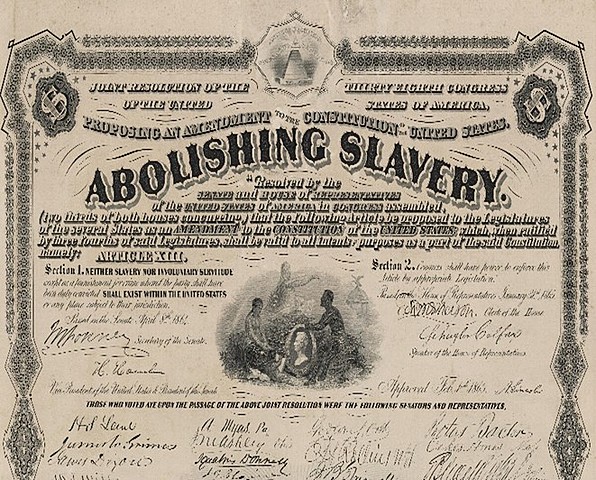 JOINT RESOLUTION OF THE THIRTY EIGHTH CONGRESS
OF THE UNITED STATES OF AMERICA,
PROPOSING AN AMENDMENT TO THE CONSTITUTION OF THE UNITED STATES,
ABOLISHING SLAVERY.
"Resolved by the
SENATE and HOUSE of REPRESENTATIVES
of the UNITED STATES of AMERICA in CONGRESS assembled,
(two thirds of both houses concurring,) that the following Article be proposed to the Legislatures
of the several States as an AMENDMENT to the CONSTITUTION of the UNITED STATES which, when ratified
by three fourths of said Legislatures, shall be valid to all intents & purposes as a part of the said Constitution,
namely: ARTICLE XIII.
Section 1. NEITHER SLAVERY NOR INVOLUNTARY SERVITUDE
except as a punishment for crime whereof the party shall have
been duly convicted SHALL EXIST WITHIN THE UNITED STATES
or any place subject to their jurisdiction.
Passed in the Senate April 8th 1864.
Secretary of the Senate.
H. Hamlin
Vice President of the United States & President of the Senate
Section 2. Congress shall have power to enforce this
Article by appropriate Legislation.
House of Representatives January 31st 1865
Clerk of the House
Schuyler Colfax
Speaker of the House of Representatives
Approved Feb. 1st 1865. A. Lincoln
THOSE WHO VOTED AYE UPON THE PASSAGE OF THE ABOVE JOINT RESOLUTION WERE THE FOLLOWING SENATORS AND REPRESENTATIVES.
H S Lane
James W Grimes
Ignatius Donnelly